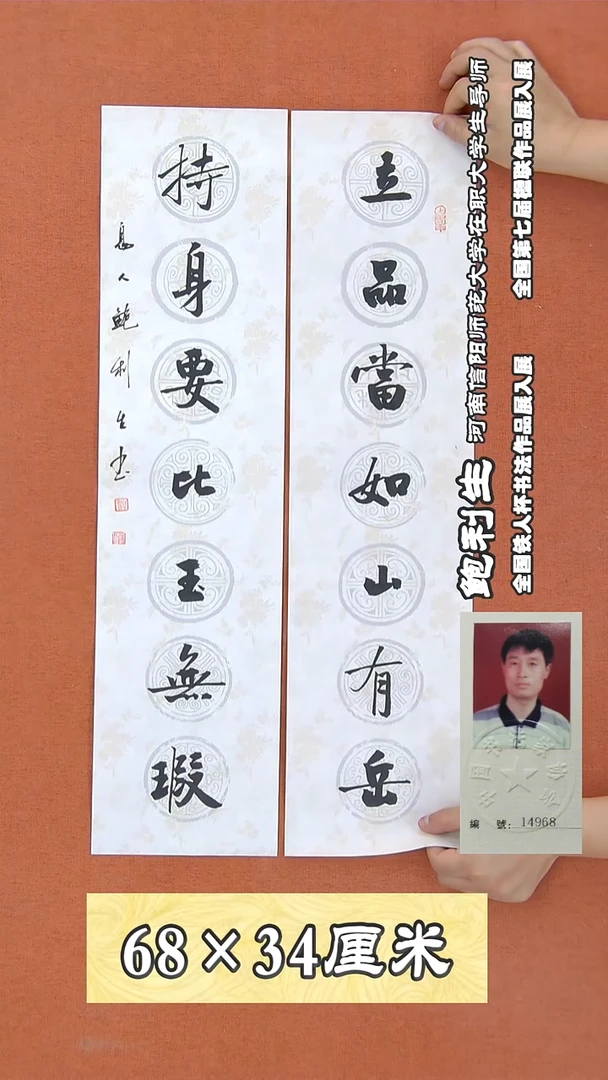 立品當如山有岳
持身要比玉無瑕
息人鲍利生书
鲍利生 河南信阳师范大学在职大学生导师
全国铁人杯书法作品展入展 全国第七届楹联作品展入展
編 號：14968
68×34厘米